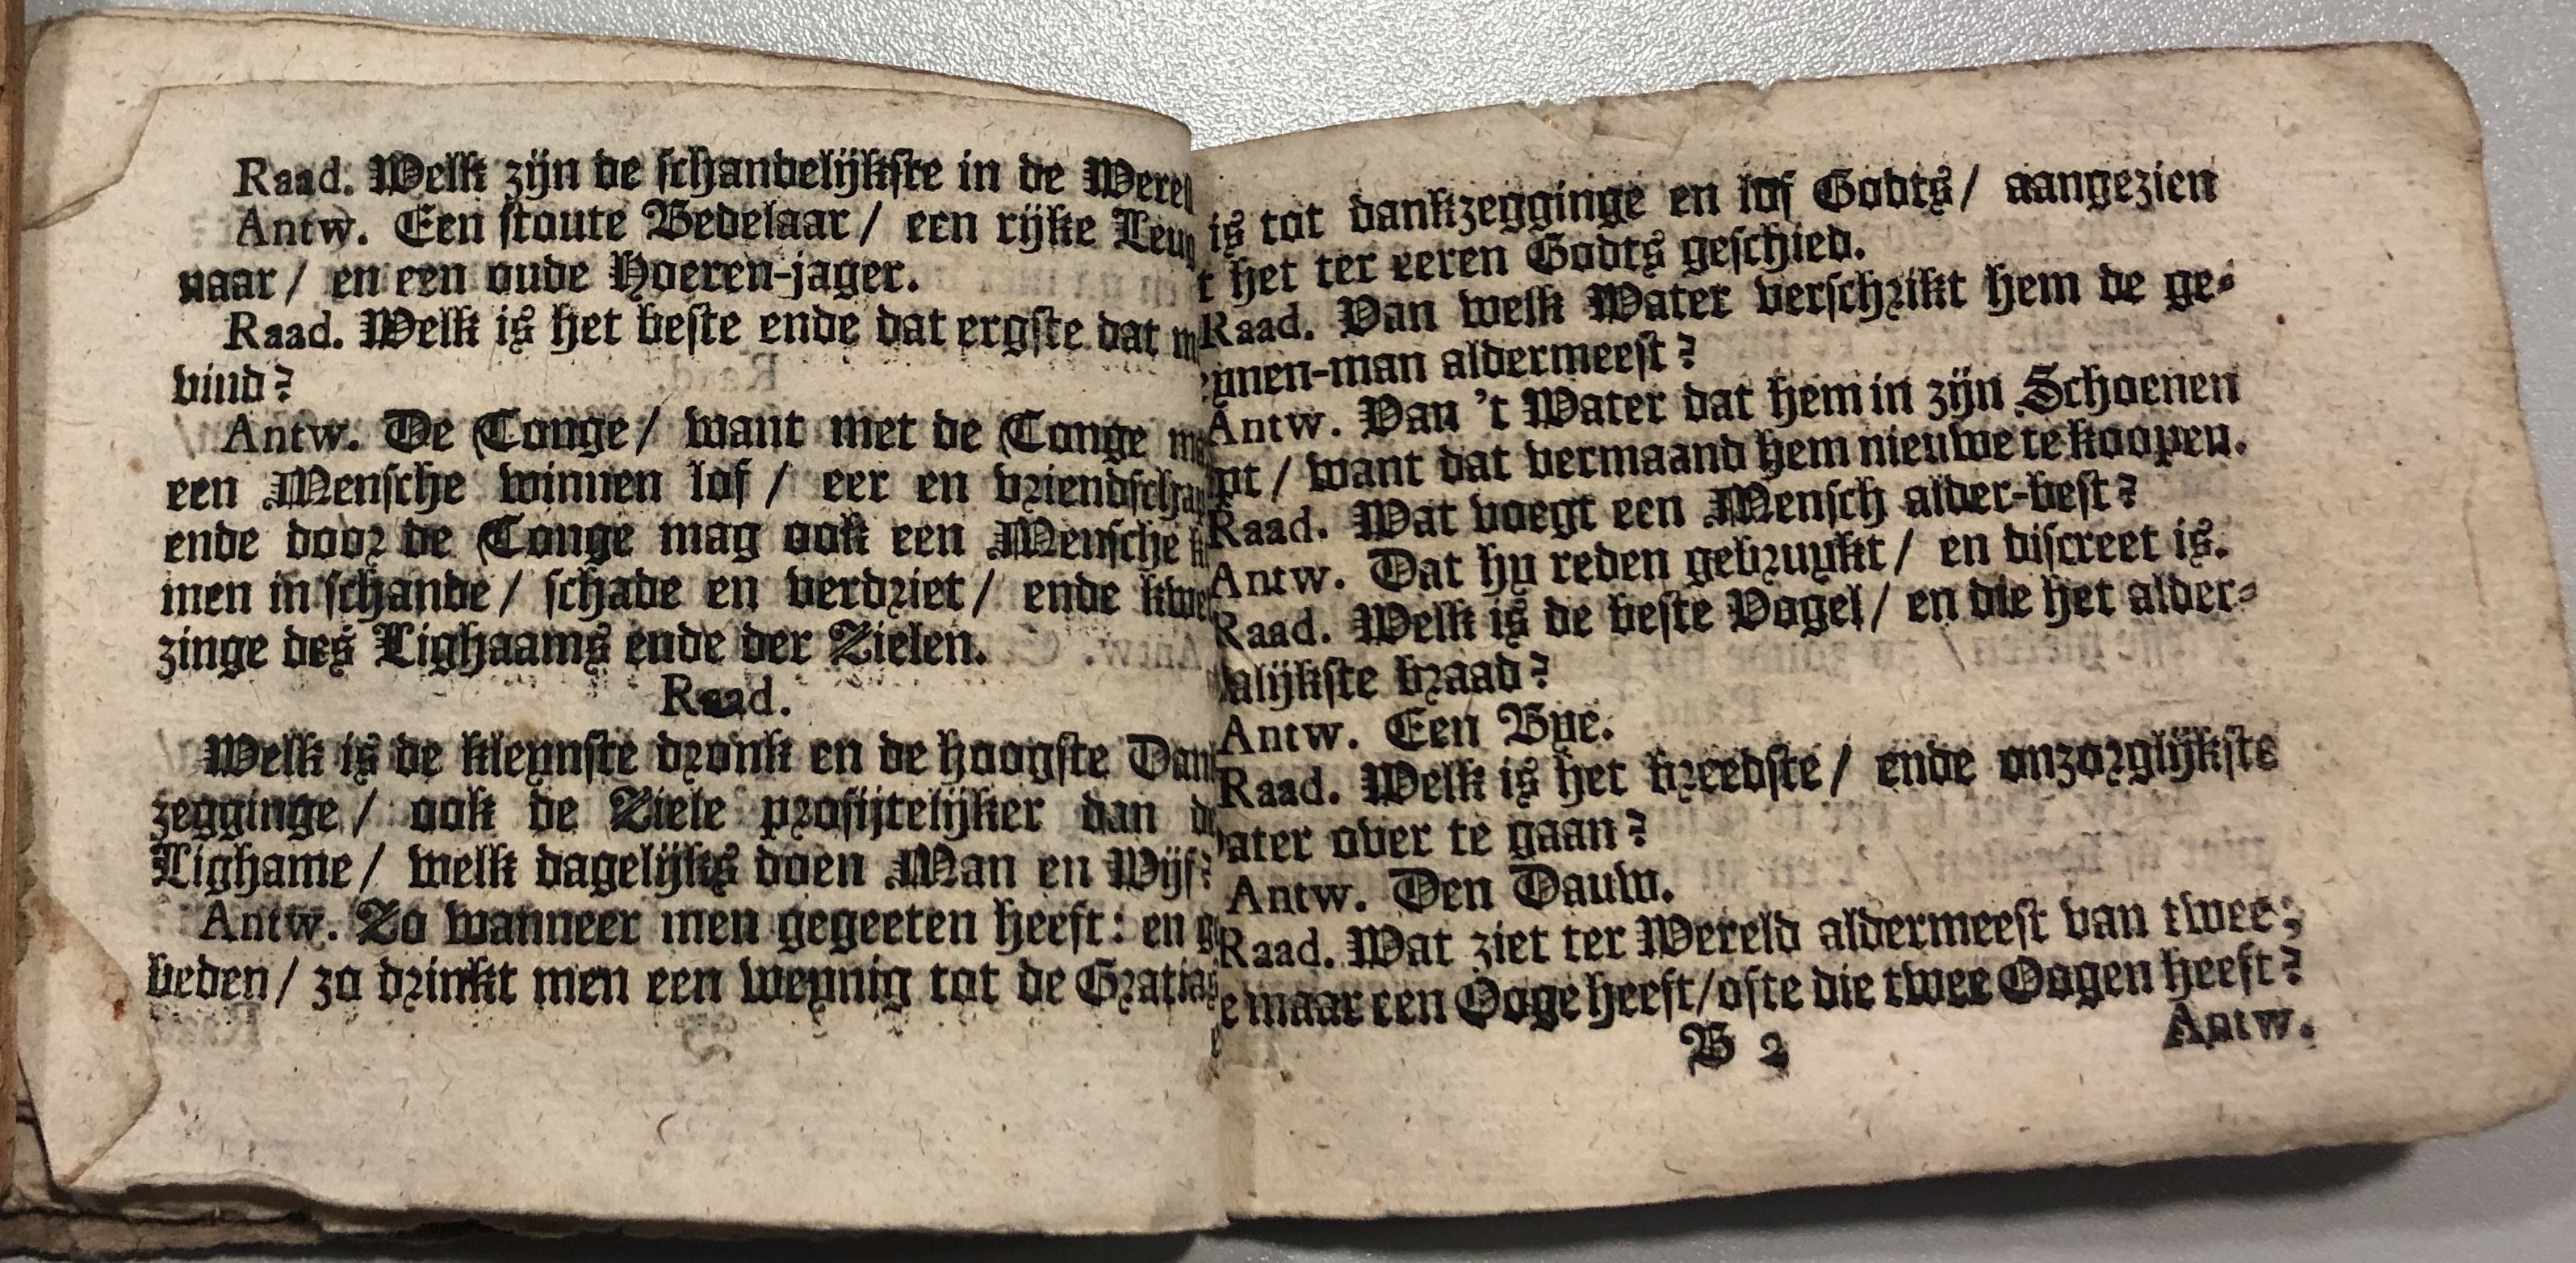 Raad. Welk zijn de schandelijkste in de Werel
Antw. Een stoute Bedelaar/ een rijke Leug
naar/ en een oude Hoeren-jager.
Raad. Welk is het beste ende dat ergste dat m
vind?
Antw. De Tonge/ want met de Tonge m
een Mensche winnen lof/ eer en vriendschap
ende door de Tonge mag ook een Mensche k
men in schande/ schade en verdriet/ ende kwe
zinge des Lighaams ende der Zielen.
Raad.
Welk is de kleynste dronk en de hoogste Dank
zegginge/ ook de Ziele profijtelijker dan d
Lighame/ welk dagelijks doen Man en Wijf?
Antw. Zo wanneer men gegeeten heeft: en g
beden/ zo drinkt men een weynig tot de Gratias
is tot dankzegginge en lof Godts/ aangezien
t het ter eeren Godts geschied.
Raad. Van welk Water verschrikt hem de ge-
ynen-man aldermeest?
Antw. Van 't Water dat hem in zijn Schoenen
mt/ want dat vermaand hem nieuwe te koopen.
Raad. Wat voegt een Mensch alder-best?
Antw. Dat hy reden gebruykt/ en discreet is.
Raad. Welk is de beste Vogel/ en die het alder-
alijkste braad?
Antw. Een Bye.
Raad. Welk is het breedste/ ende onzorglijkste
ater over te gaan?
Antw. Den Dauw.
Raad. Wat ziet ter Wereld aldermeest van twee;
e maar een Ooge heeft/ ofte die twee Oogen heeft?
B 2 Antw.